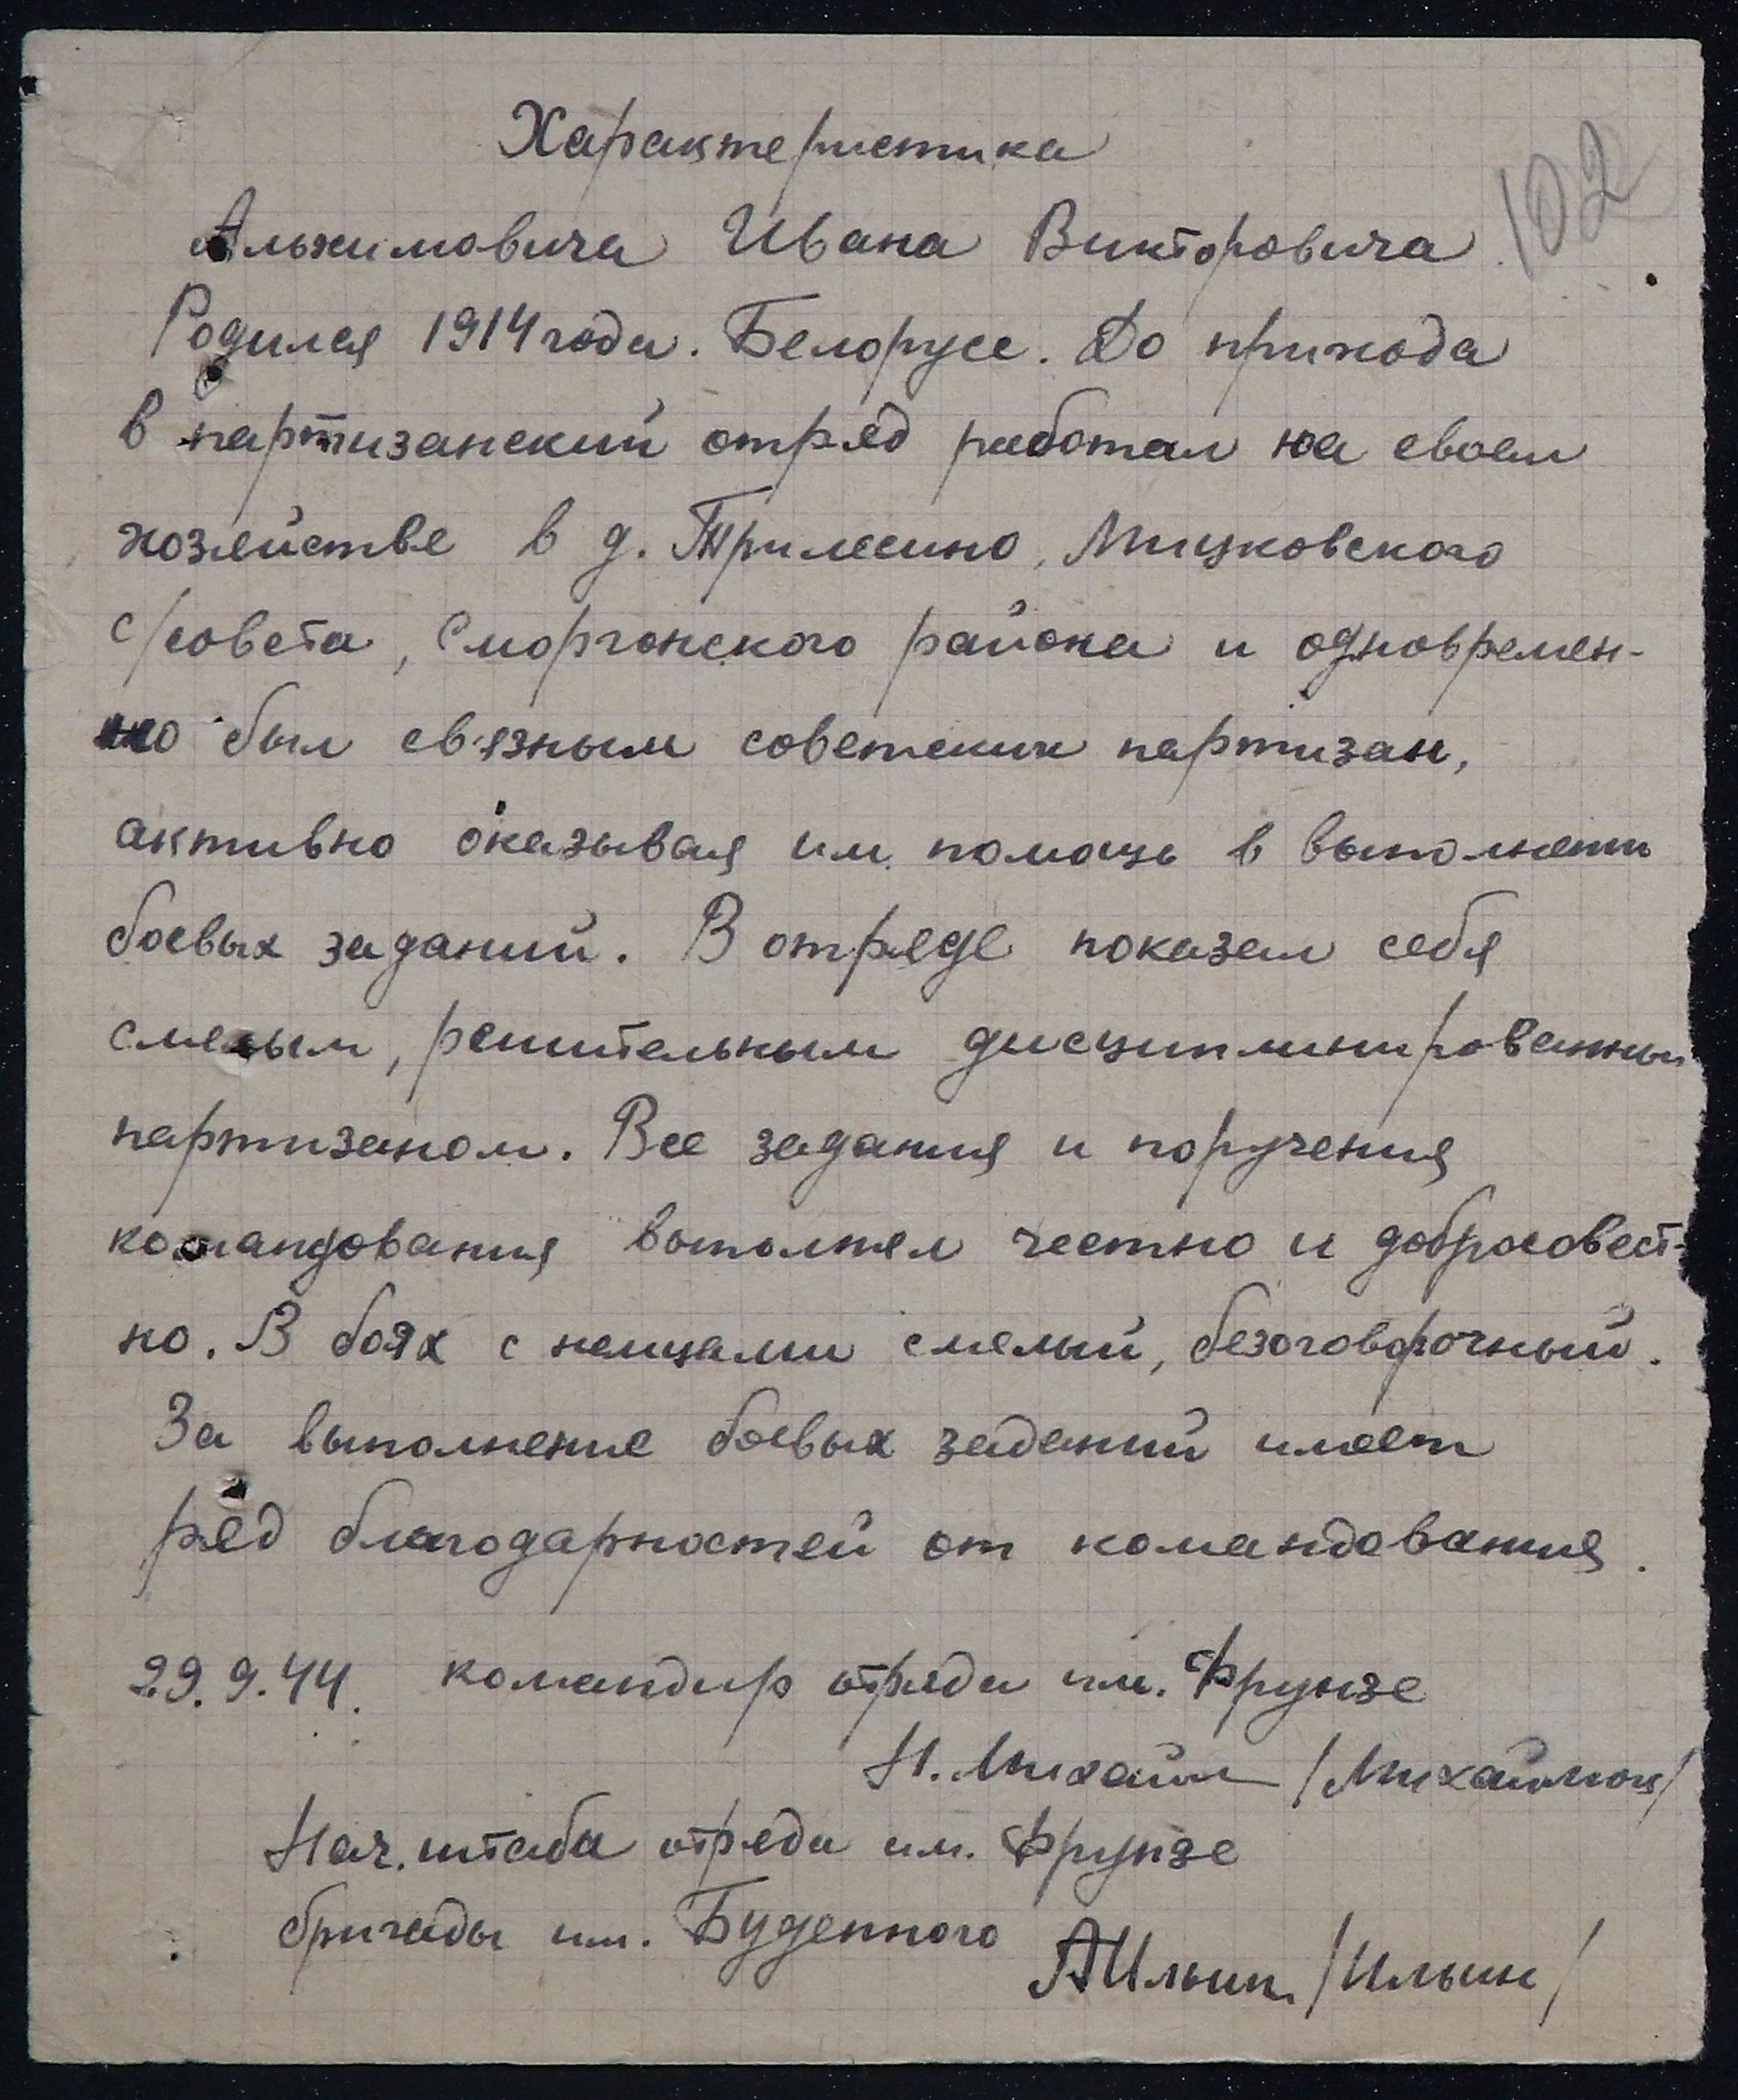 Характеристика
102
Альхимовича Ивана Викторовича
Родился 1914 года. Белорусс. До прихода
в партизанский отряд работал на своем
хозяйстве в д. Трилесино, Мицковского
с/совета, Сморгонского района и одновремен-
но был связным советских партизан,
активно оказывая им помощь в выполнении
боевых заданий. В отряде показал себя
смелым, решительным дисциплинированным
партизаном. Все задания и поручения
командования выполнял честно и добросовест-
но. В боях с немцами смелый, безоговорочный.
За выполнение боевых заданий имеет
ряд благодарностей от командования.
29.9.44. командир отряда им. Фрунзе
Н. Михайл /Михайлюц/
Нач. штаба отряда им. Фрунзе
бригады им. Буденного
АИльин /Ильин/